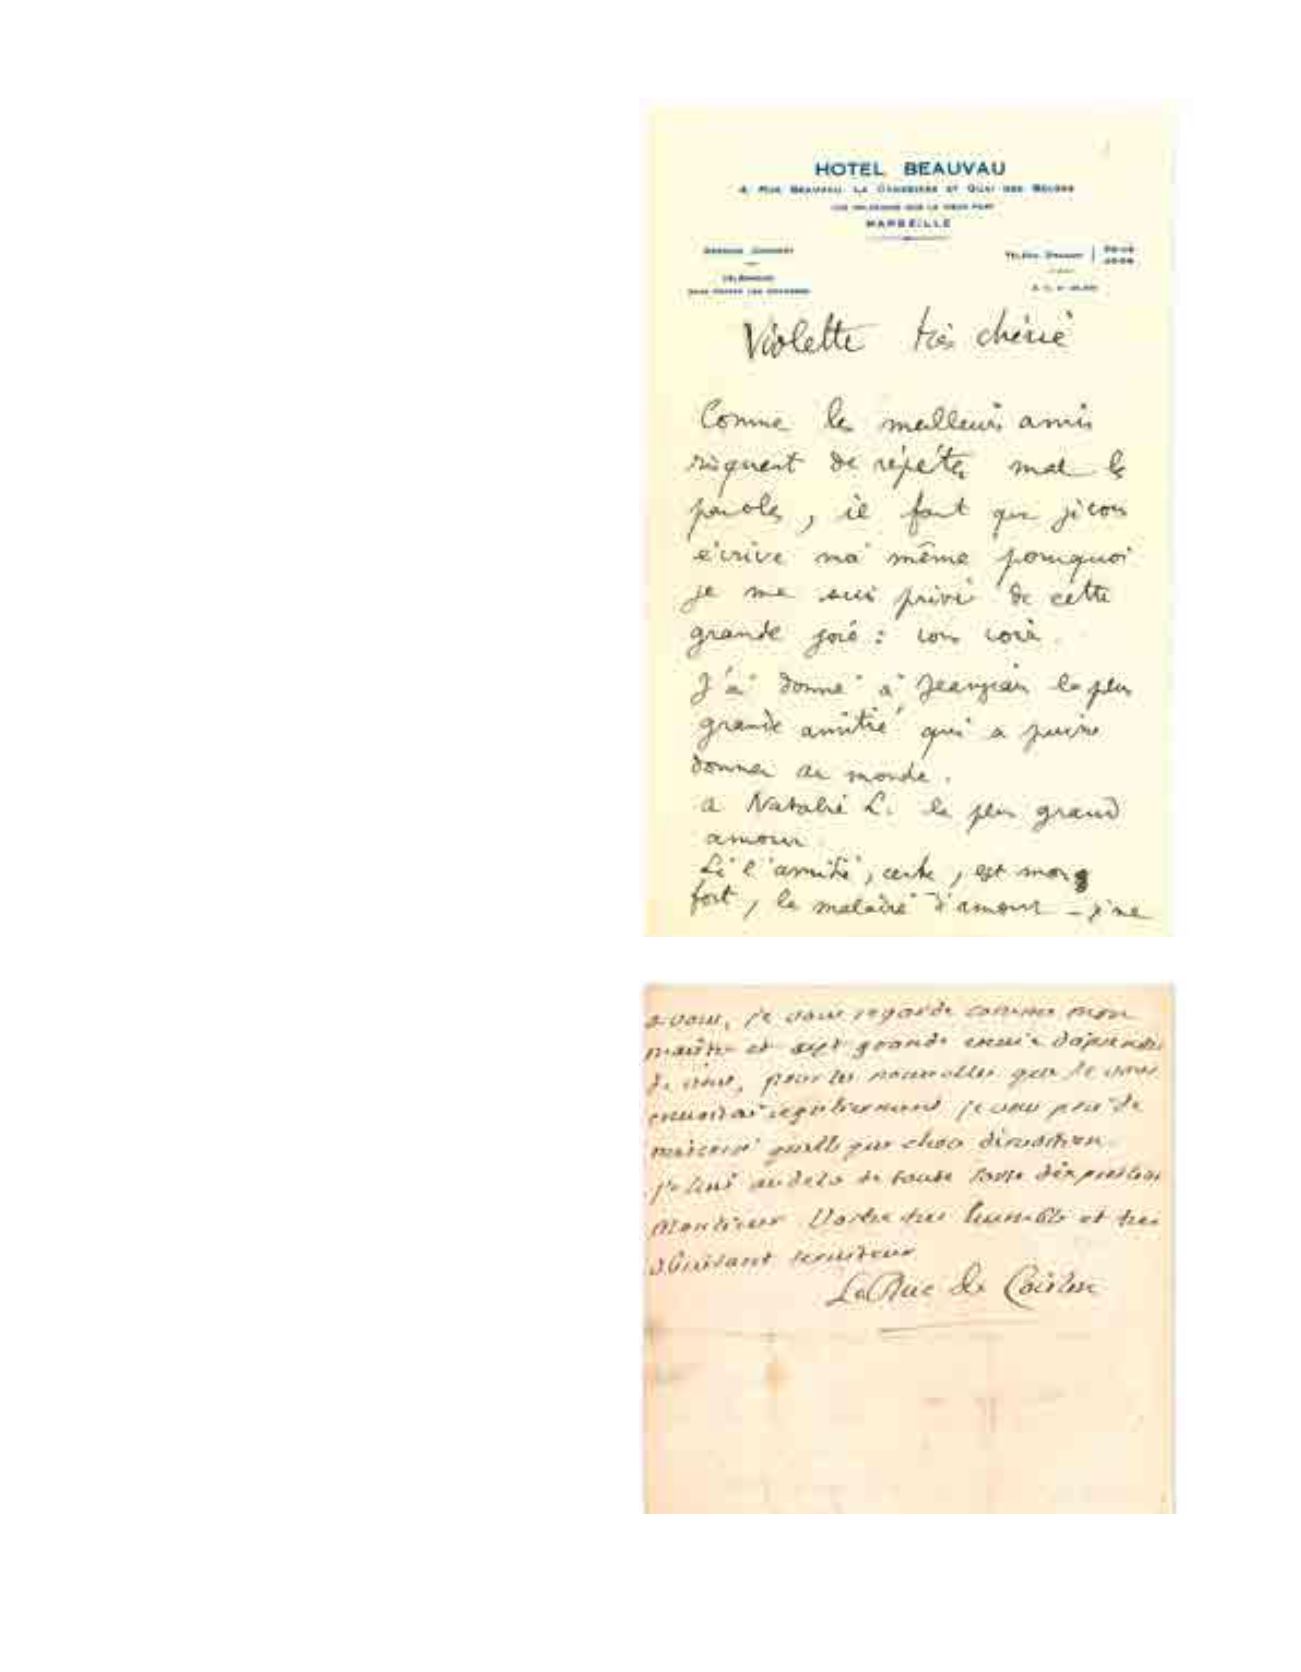 HOTEL BEAUVAU
4, RUE BEAUVAU, LA CANEBIÈRE ET QUAI DES BELGES
MARSEILLE
Violette très chérie
Comme les meilleurs amis
risquent de répéter mal les
paroles, il faut que je vous
écrive moi même pourquoi
je me suis privé de cette
grande joie : vous voir.
J'ai donné à Jeanjean la plus
grande amitié qui a puisse
donner au monde.
a Natalie L. le plus grand
amour
Si l'amitié, certes, est
fort, la maladie d'amour – je ne
a vous, je vous regarde comme mon
maitre et ait grande envie daprendre
de vous, pour les nouvelles que je vous
regulierement je vous prie de
quelle que chose
je suis au dela de toute sorte dexpression
Monsieur Vostre tres humble et tres
obeissant serviteur
Le Duc de